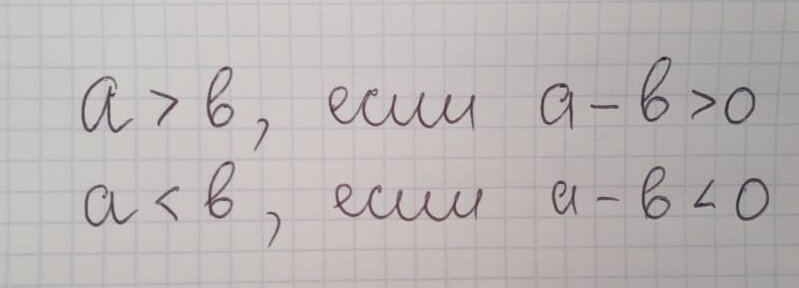 a > b, если a - b > 0
a < b, если a - b < 0